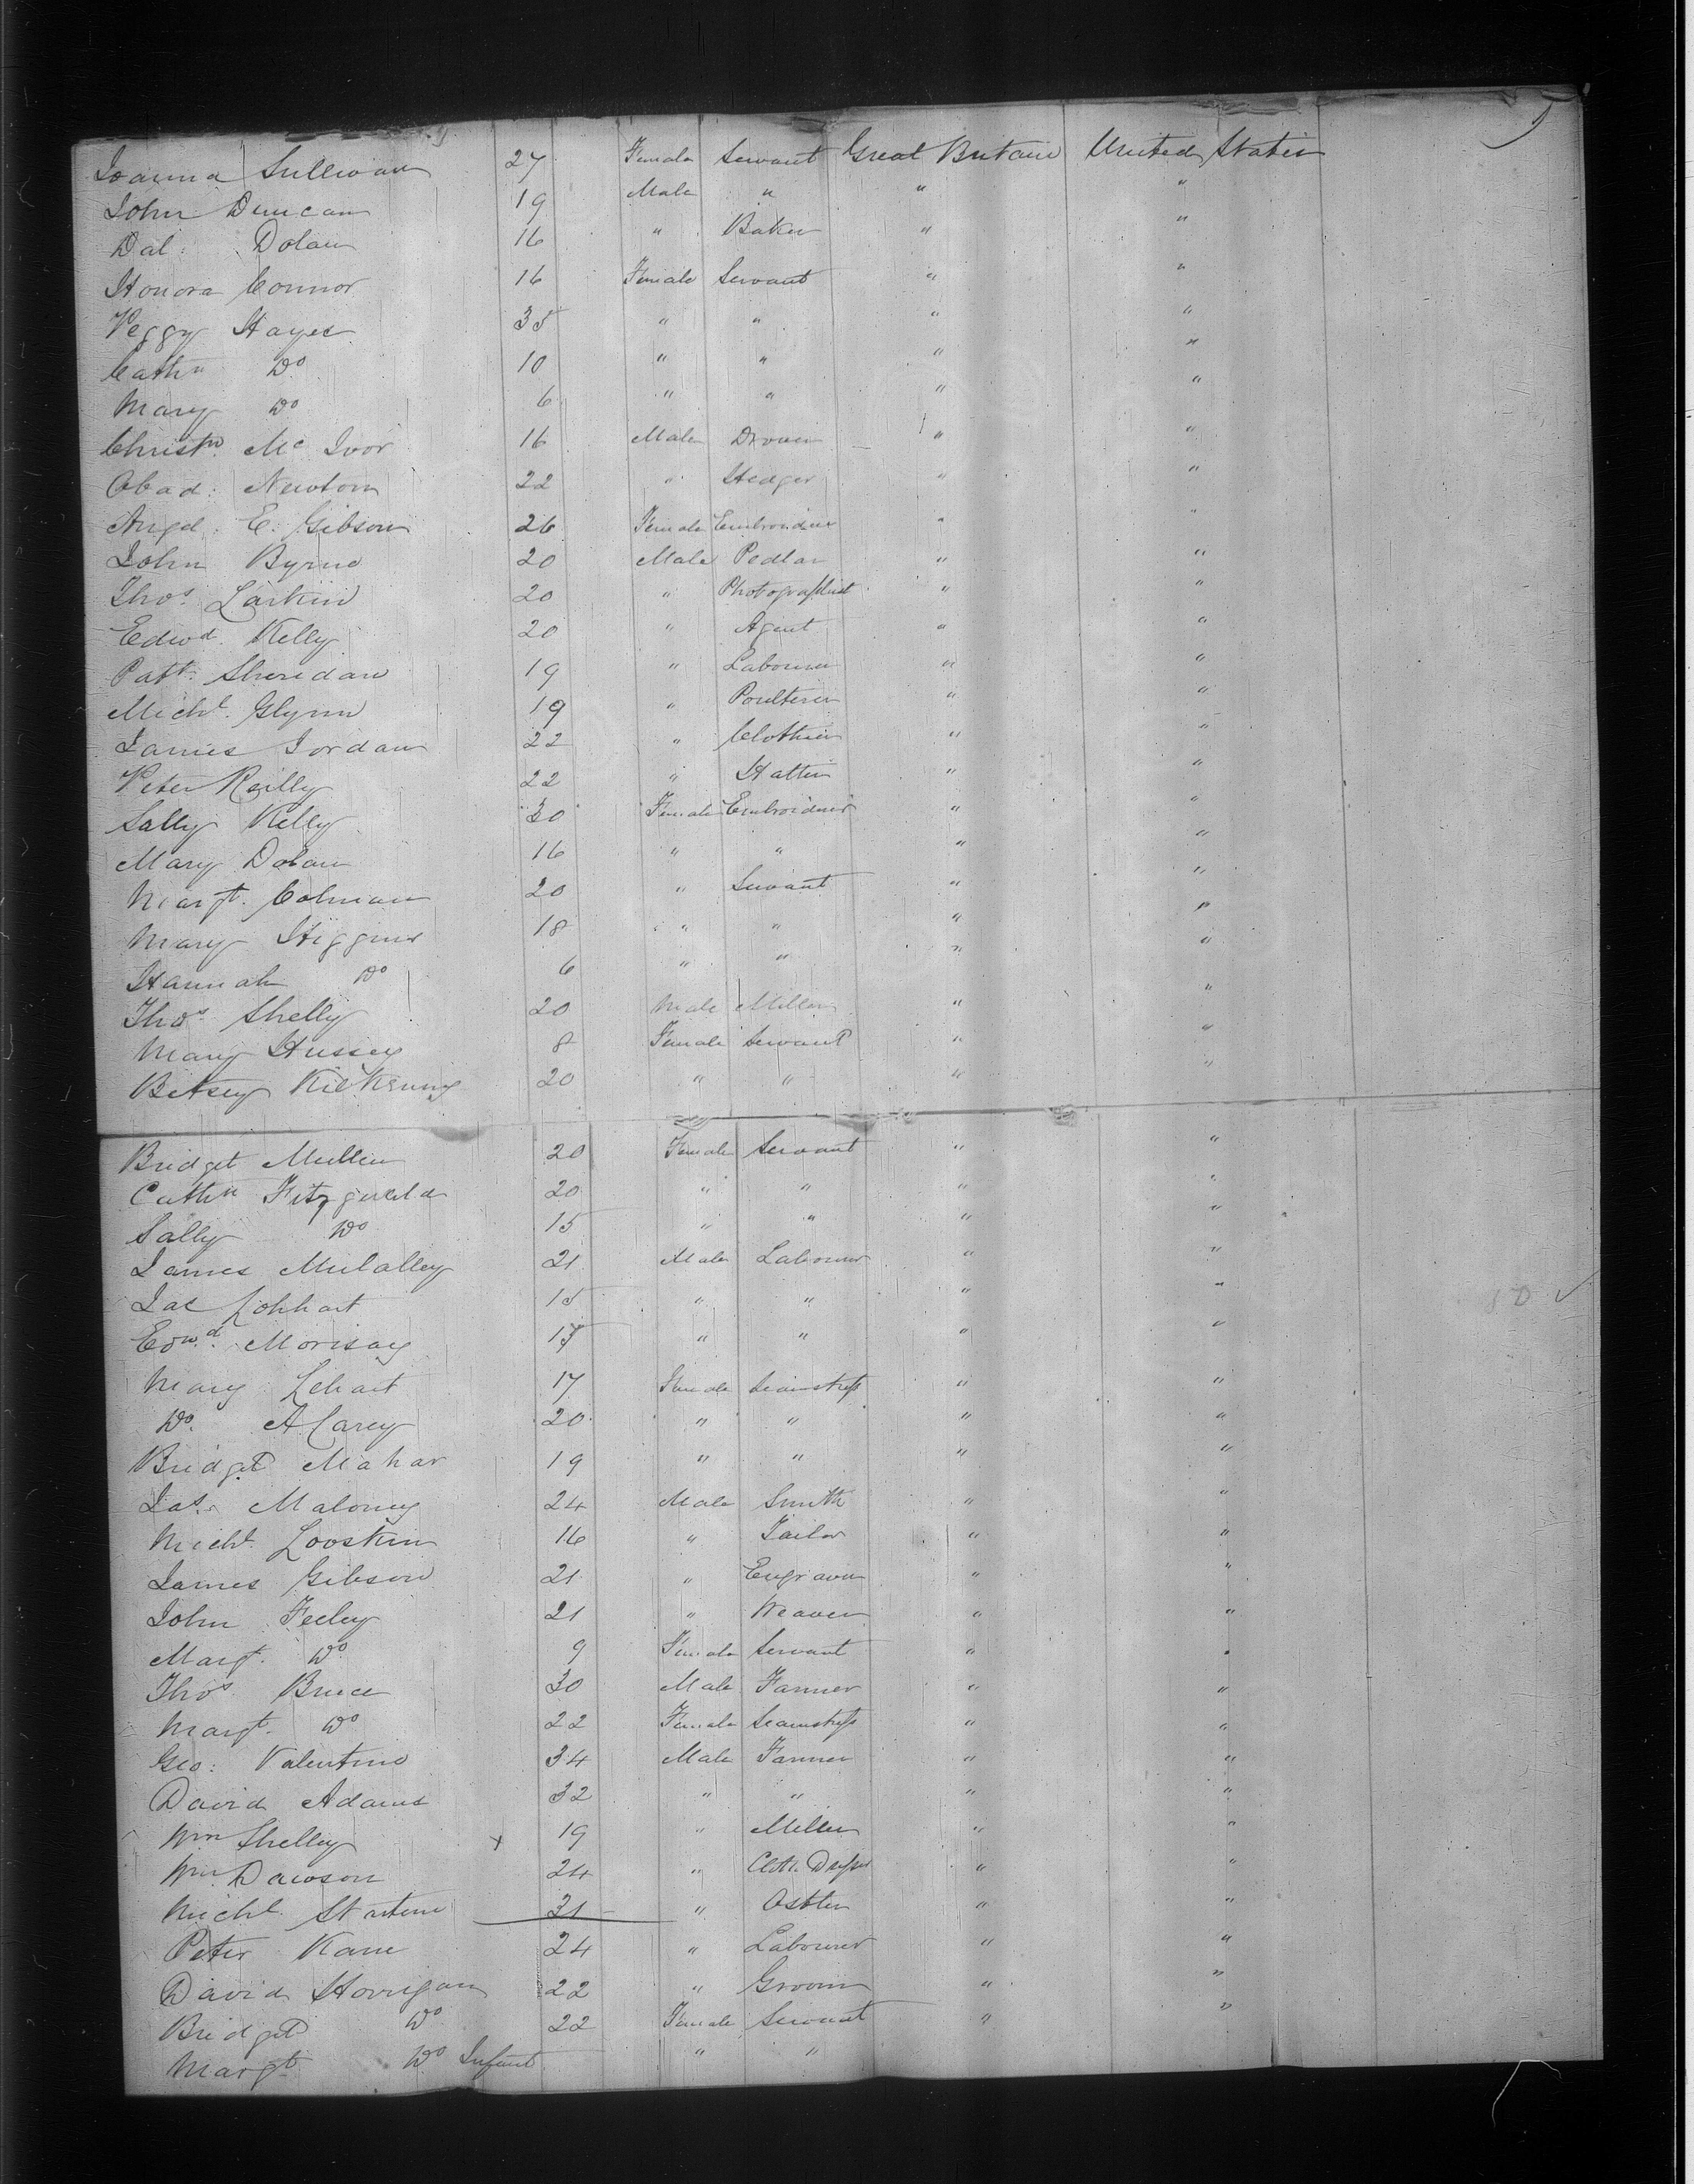 Joanna Sullivan 27 Female Servant Great Britain United States
John Duncan 19 Male " " "
Dal: Dolan 16 " Baker " "
Honora Connor 16 Female Servant " "
Peggy Hayes 35 " " " "
Cathn Do 10 " " " "
Mary Do 6 " " " "
Christr. Mc Ivor 16 Male Drover " "
Obad: Newton 22 " Hedger " "
Angel. E. Gibson 26 Female Embroider " "
John Byrne 20 Male Pedlar " "
Thos. Larkin 20 " Photographist " "
Edwd. Kelly 20 " Agent " "
Patt. Sheridan 19 " Labourer " "
Michl. Glynn 19 " Poulterer " "
James Jordan 22 " Clothier " "
Peter Reilly 22 " Hatter " "
Sally Kelly 30 Female Embroiderer " "
Mary Dolan 16 " " " "
Margt. Colman 20 " Servant " "
Mary Higgins 18 " " " "
Hannah Do 6 " " " "
Thos. Shelly 20 Male Miller " "
Mary Hussey 8 Female Servant " "
Betsey 20 " " " "
Bridget Mullen 20 Female Servant " "
Cathn Fitzgerald 20 " " " "
Sally Do 15 " " " "
James Mulalley 21 Male Labourer " "
Jas 15 " " " "
Edwd. Morisey 15 " " " "
Mary 17 Female Seamstress " "
Do. A Carey 20 " " " "
Bridget Mahar 19 " " " "
Jas. Maloney 24 Male Smith " "
Michl. 16 " Tailor " "
James Gibson 21 " Engraver " "
John Feeley 21 " Weaver " "
Margt. Do 9 Female Servant " "
Thos Bruce 30 Male Farmer " "
Margt. Do 22 Female Seamstress " "
Geo: Valentine 34 Male Farmer " "
David Adams 32 " " " "
Wm Shelley x 19 " Miller " "
Wm. Dawson 24 " Cloth Dresser " "
Michl. 31 " Ostler " "
Peter Kane 24 " Labourer " "
David Horrigan 22 " Groom " "
Bridget Do 22 Female Servant " "
Margt Do Infant " "